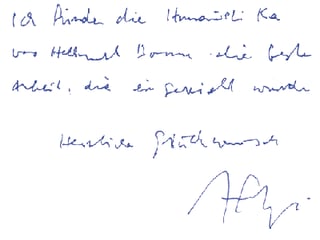 Ich finden die Humanisti Ka
von Hellmut Bomm die beste
Arbeit, die eingereicht wurde
Herzlichen Glückwunsch